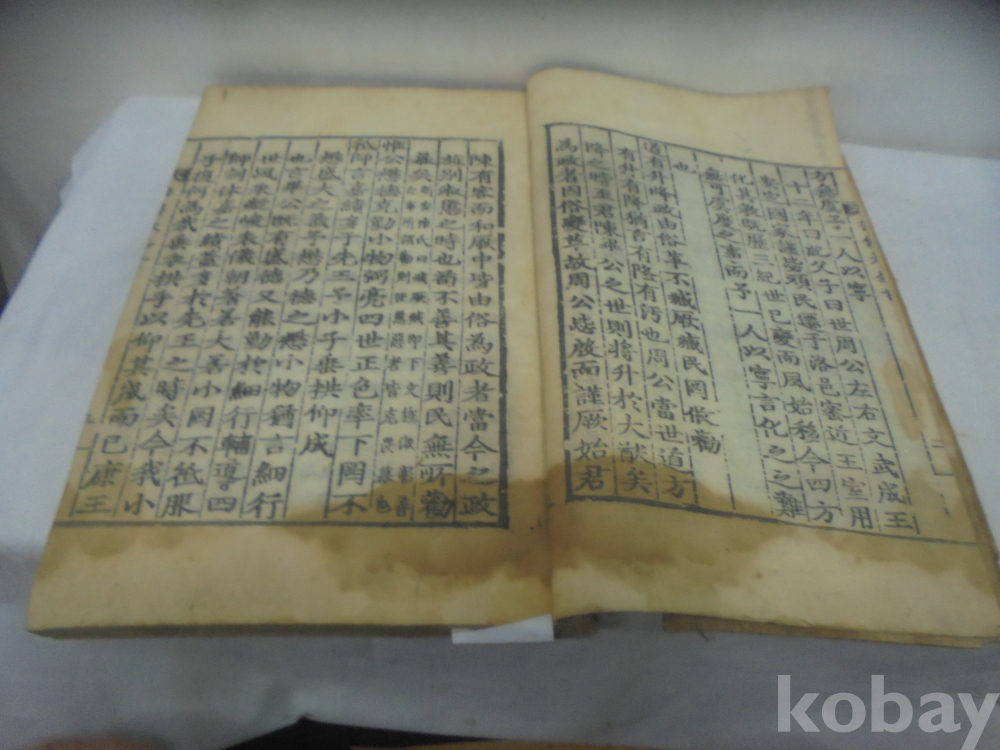 方無虞予一人以寧
十二年曰紀父子曰世周公左右文武成王
安定國家謹毖頑民遷于洛邑密近王室用
化其教既歷三紀世已變而風始移今四方
無可虞度之事而予一人以寧言化之之難
也
道有升降政由俗革不臧厥臧民罔攸勸
有升有降猶言有隆有汚也周公當世道方
降之時至君陳畢公之世則將升於大猷矣
為政者因俗變革故周公毖殷而謹厥始君
陳有容而和厥中皆由俗為政者當今之政
旌別淑慝之時也苟不善其善則民無所勸
慕矣
陳氏曰臧厥臧即下文旌淑彰善
之事所謂勸則使爲惡者皆慕
惟公懋德克勤小物弼亮四世正色率下罔不
祗師言嘉績多于先王予小子垂拱仰成
懋盛大之義予懋乃德之懋小物猶言細行
也言畢公既有盛德又能勤於細行輔導四
世風采凝峻表儀朝著若大若小罔不祗服
師訓休嘉之績蓋多於先王之時矣今我小
子復何為哉垂衣拱手以仰其成而已康王
kobay